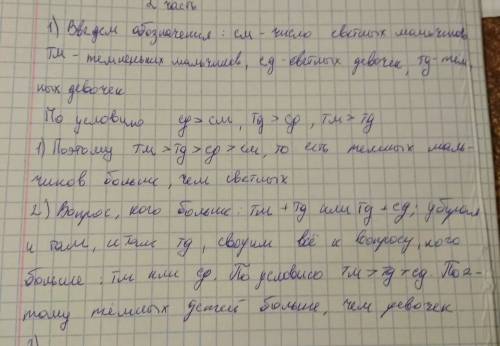 2 часть
1) Введем обозначения: см - число светлых мальчиков
тм - темненьких мальчиков, сд - светлых девочек, тд - тем
ных девочек
По условию сд > см, тд > сд, тм > тд
1) Поэтому тм > тд > сд > см, то есть темных маль-
чиков больше, чем светлых
2) Вопрос, кого больше: тм + тд или тд + сд; убираем
и там, и там тд, сводим всё к вопросу, кого
больше: тм или сд. По условию тм > тд > сд. Поэ-
тому тёмных детей больше, чем девочек